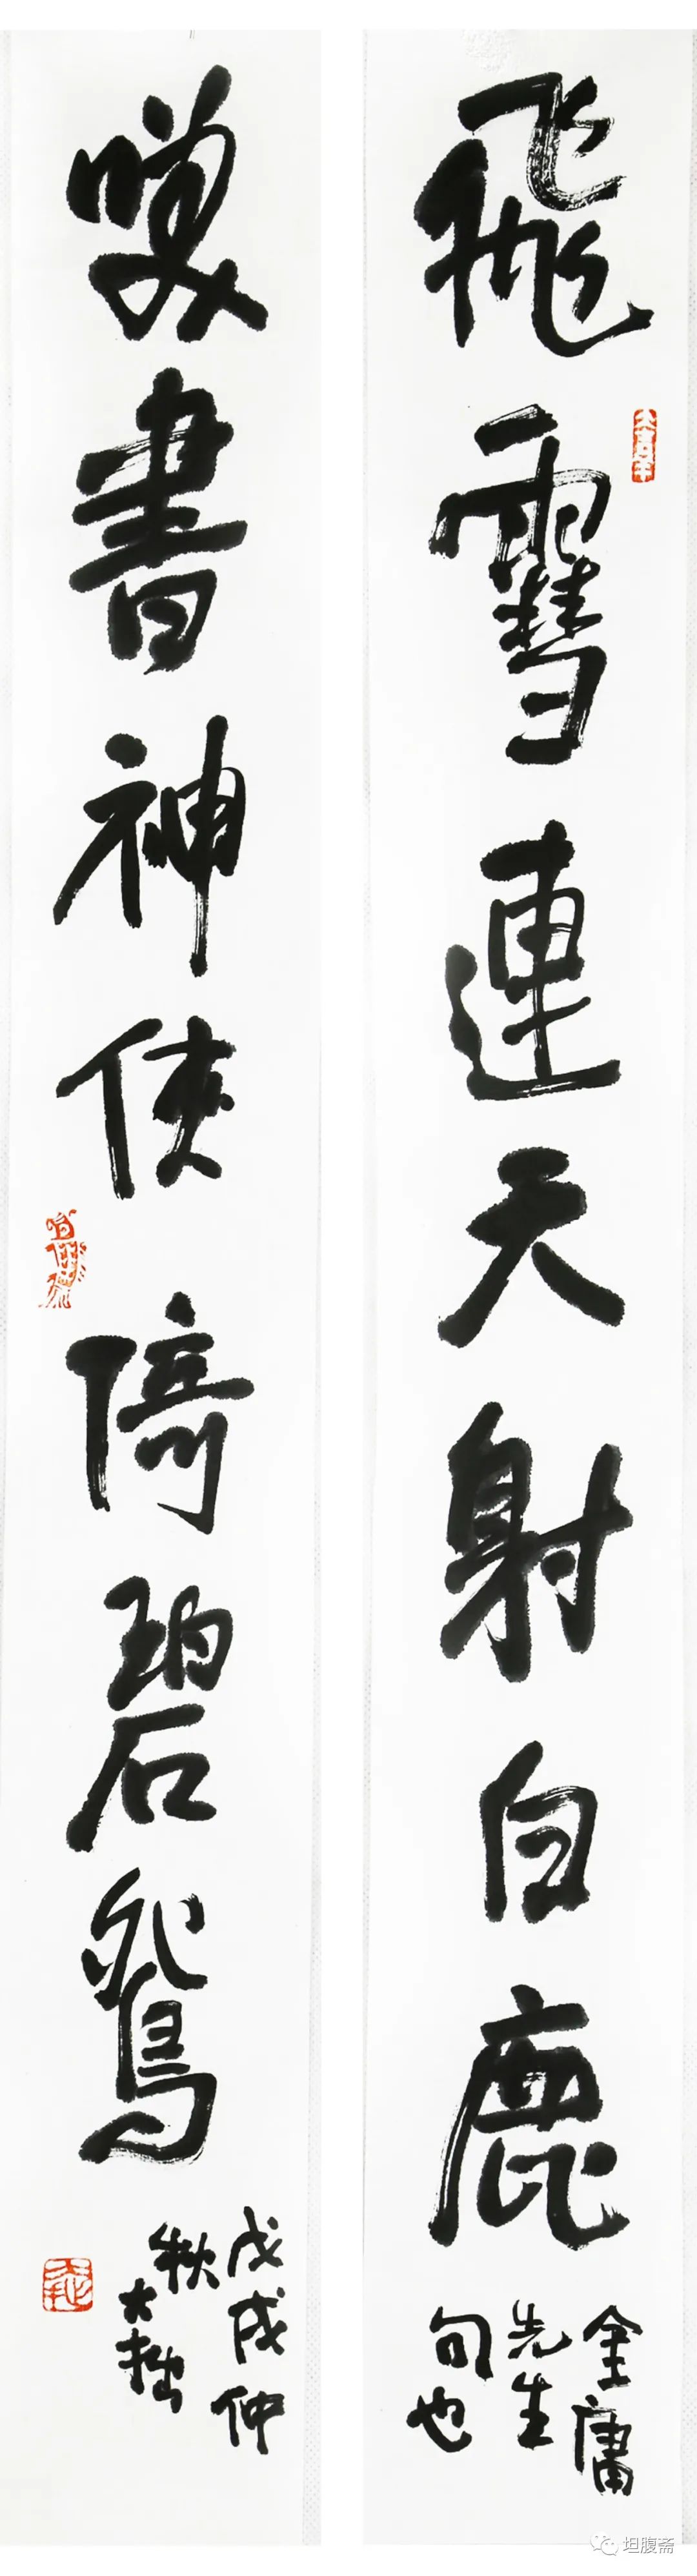 飛雪連天射白鹿
金庸
先生
句也
笑書神俠倚碧鴛
戊戌仲
秋
大拙
坦腹斋